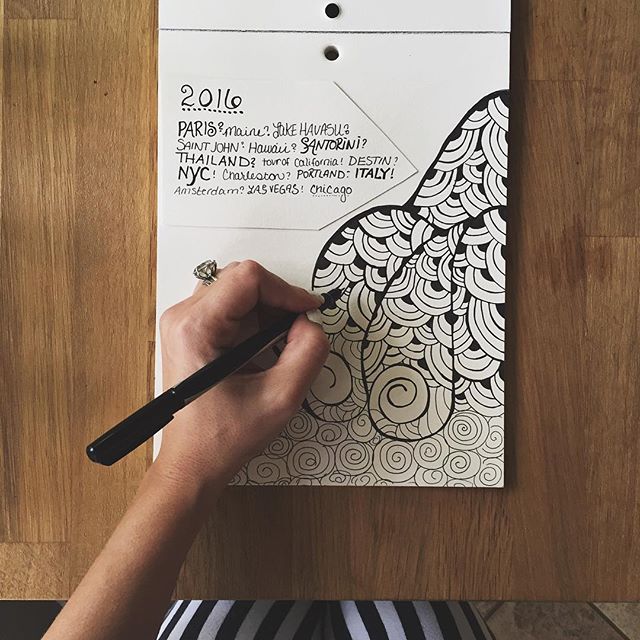 2016
PARIS? Maine? LAKE HAVASU?
SAINT JOHN? Hawaii? SANTORINI?
THAILAND? tour of California! DESTIN?
NYC! Charleston? PORTLAND? ITALY!
Amsterdam? LAS VEGAS! Chicago